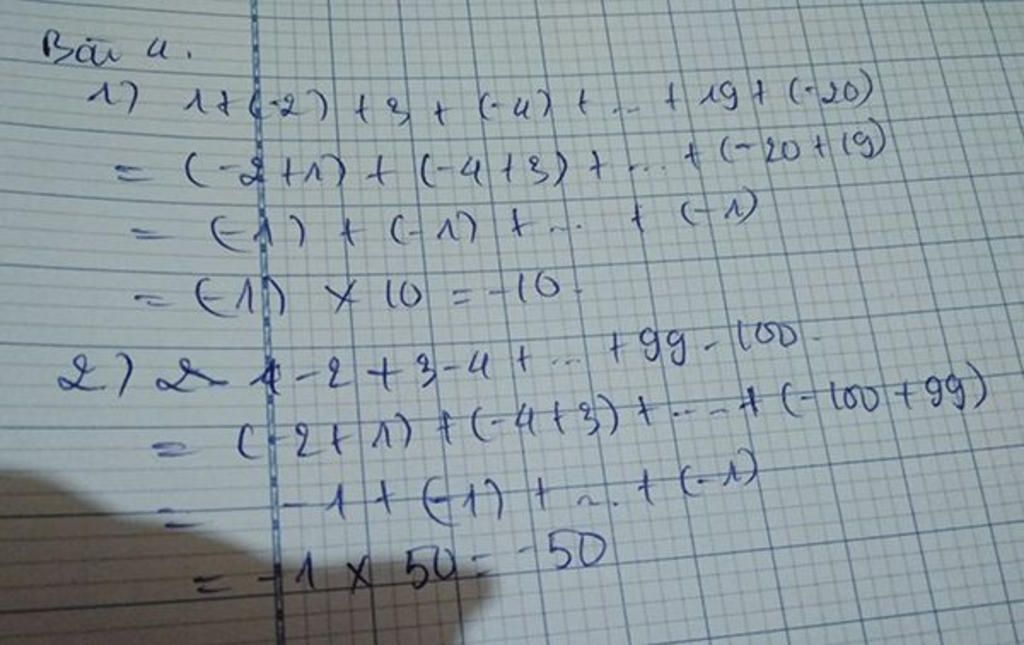 Bài 4.
1) 1+(-2) + 3 + (-4) + ... + 19 + (-20)
= (-2+1) + (-4+3) + ... + (-20+19)
= (-1) + (-1) + ... + (-1)
= (-1) × 10 = -10.
2) 1 - 2 + 3 - 4 + ... + 99 - 100
= (-2+1) + (-4+3) + ... + (-100+99)
= -1 + (-1) + ... + (-1)
= -1 × 50 = -50